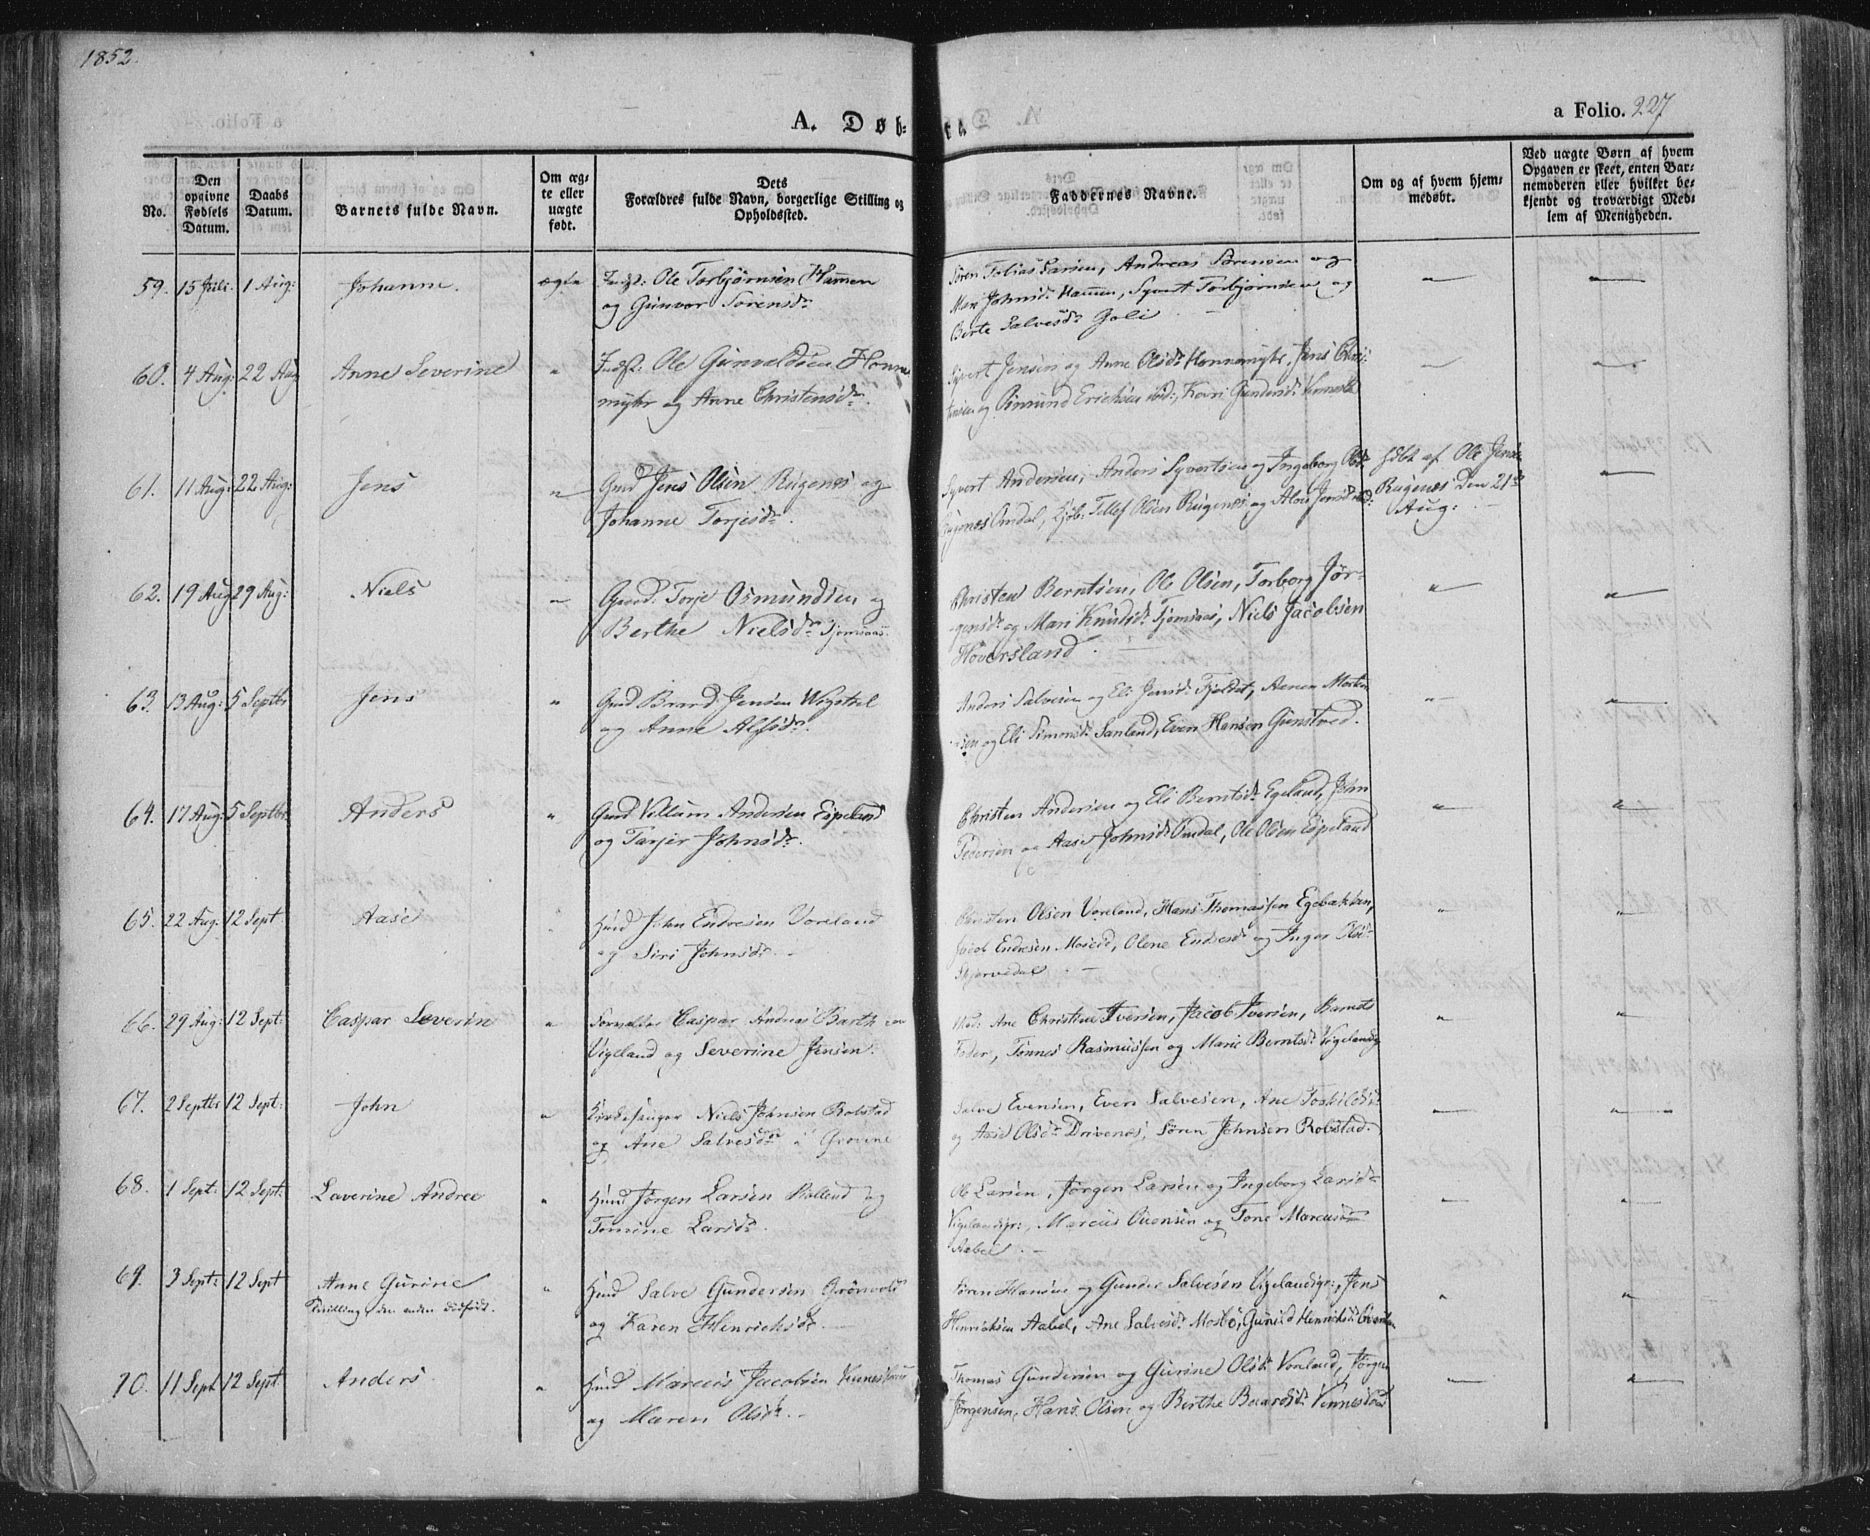 1852.
A. Døb-
te
a Folio. 227
No.
Den opgivne Fødsels Datum.
Daabs Datum.
Barnets fulde Navn.
Om ægte eller uægte født.
Dets Forældres fulde Navn, borgerlige Stilling og Opholdssted.
Faddernes Navne.
Om og af hvem hjemmedøbt.
Ved uægte Børn af hvem Opgaven er skeet, enten Barnemoderen eller hvilket bekjendt og troværdigt Medlem af Menigheden.
59. 15 Juli. 1 Aug: Johanne. ægte Ole Torbjørnsen Hamen
og Gunvor Sørensdr
Søren Tobias Larsen, Andreas Sørensen og
Mari Johnsdr Hamen, Syvert Torbjørnsen og
Berte Salvesdr Goli
60. 4 Aug: 22 Aug Anne Severine " Ole Gunvaldsen Homme
myhr og Anne Christensdr.
Syvert Jensen og Anne Olsdr Hommemyhr, Jens Chri-
stensen og Osmund Erichsen ibid:, Kari Gundersdr
61. 11 Aug: 22 Aug: Jens " Gmd Jens Olsen Rugenes og
Johanne Torjesdr.
Syvert Andersen, Anders Syvertsen og Ingeborg Olsdr
Omdal, Tellef Olsen Rugenes og Jensdr
døbt af Ole Jens.
Rugenes Den 21de
Aug:
62. 19 Aug 29 Aug: Niels " Gmd. Torje Osmundsen og
Berthe Nielsdr Tjomsaas.
Christen Berntsen, Ole Olsen, Torborg Jør-
gensdr og Mari Knudsdr Tjomsaas, Niels Jacobsen
Høversland.
63. 13 Aug: 5 Septbr Jens " Gmd Brard Jensen Wigstøl
og Anne Alfsdr.
Anders Salvesen og Eli Jensdr Morten
sen og Eli Simonsdr Sanland, Even Hansen Gunstved.
64. 17 Aug: 5 Septbr. Anders " Gmd Villum Andersen Espeland
og Tarjer Johnsdr.
Christen Andersen og Eli Berntsdr Egeland, John
Pedersen og Aase Johnsdr Omdal, Ole Olsen Espeland
65. 22 Aug. 12 Sept. Aase Hmd John Endresen Voreland
og Siri Johnsdr.
Christen Olsen Voreland, Hans Thomassen Egebakken,
Jacob Endresen Mosed, Olene Endresdr og Inger Olsdr
Skjervedal
66. 29 Aug: 12 Sept: Caspar Severin " Forvalter Caspar Andreas Barth
Vigeland og Severine Jensen.
Ane Christine Iversen, Jacob Iversen, Barnets
Fader, Tønnes Rasmussen og Marie Berntsdr
67. 2 Septbr 12 Sept: John " Kirkesanger Niels Johnsen Robstad
og Ane Salvesdr i Grovene
Salve Evensen, Even Salvesen, Ane
og Aase Olsdr Drivenes, Søren Johnsen Robstad.
68. 1 Sept: 12 Sept: Laverine Andree " Hmd Jørgen Larsen og
Tomine Larsdr.
Ole Larsen, Jørgen Larsen og Ingeborg Larsdr
Vigelandigr:, Marcus Ouensen og Tone Marcusdr
Aabel
69. 3 Sept: 12 Sept Anne Gurine
Tvilling, den anden dødfødt. " Hmd Salve Gundersen Grønvold
og Karen Henrichsdr
Søren Hansen og Gunder Salvesen Vigelandigr:, Jens
Henrichsen Aabel, Ane Salvesdr Mosbø, Gunild Henrichsdr
70. 11 Sept 12 Sept. Anders. " Hmd Marcus Jacobsen
og Maren Olsdr.
Thomas Gundersen og Gurine Olsdr Voreland, Jørgen
Jørgensen, Hans Olsen og Berthe Vennesland